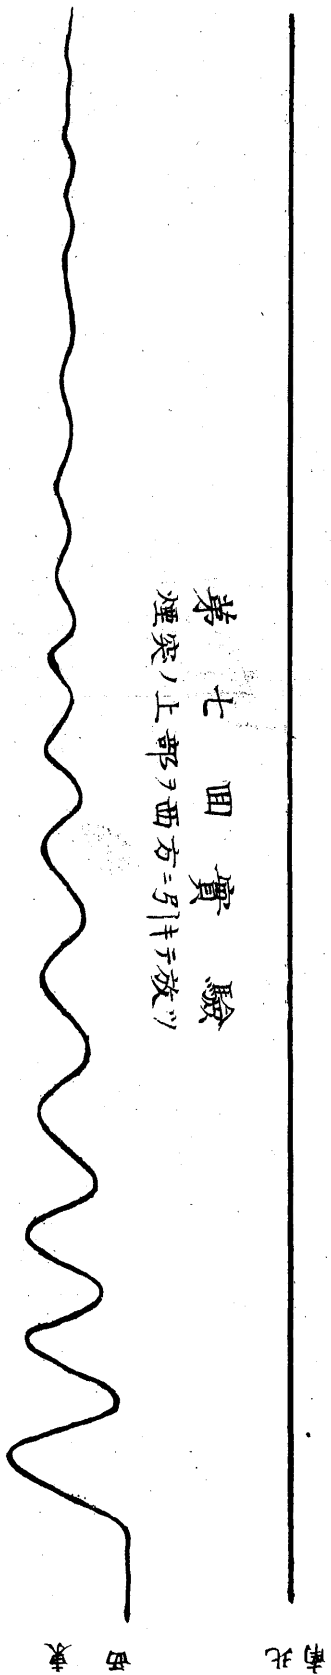 第七回實驗
煙突ノ上部ヲ西方ニ引キテ放ツ
南北
西
東